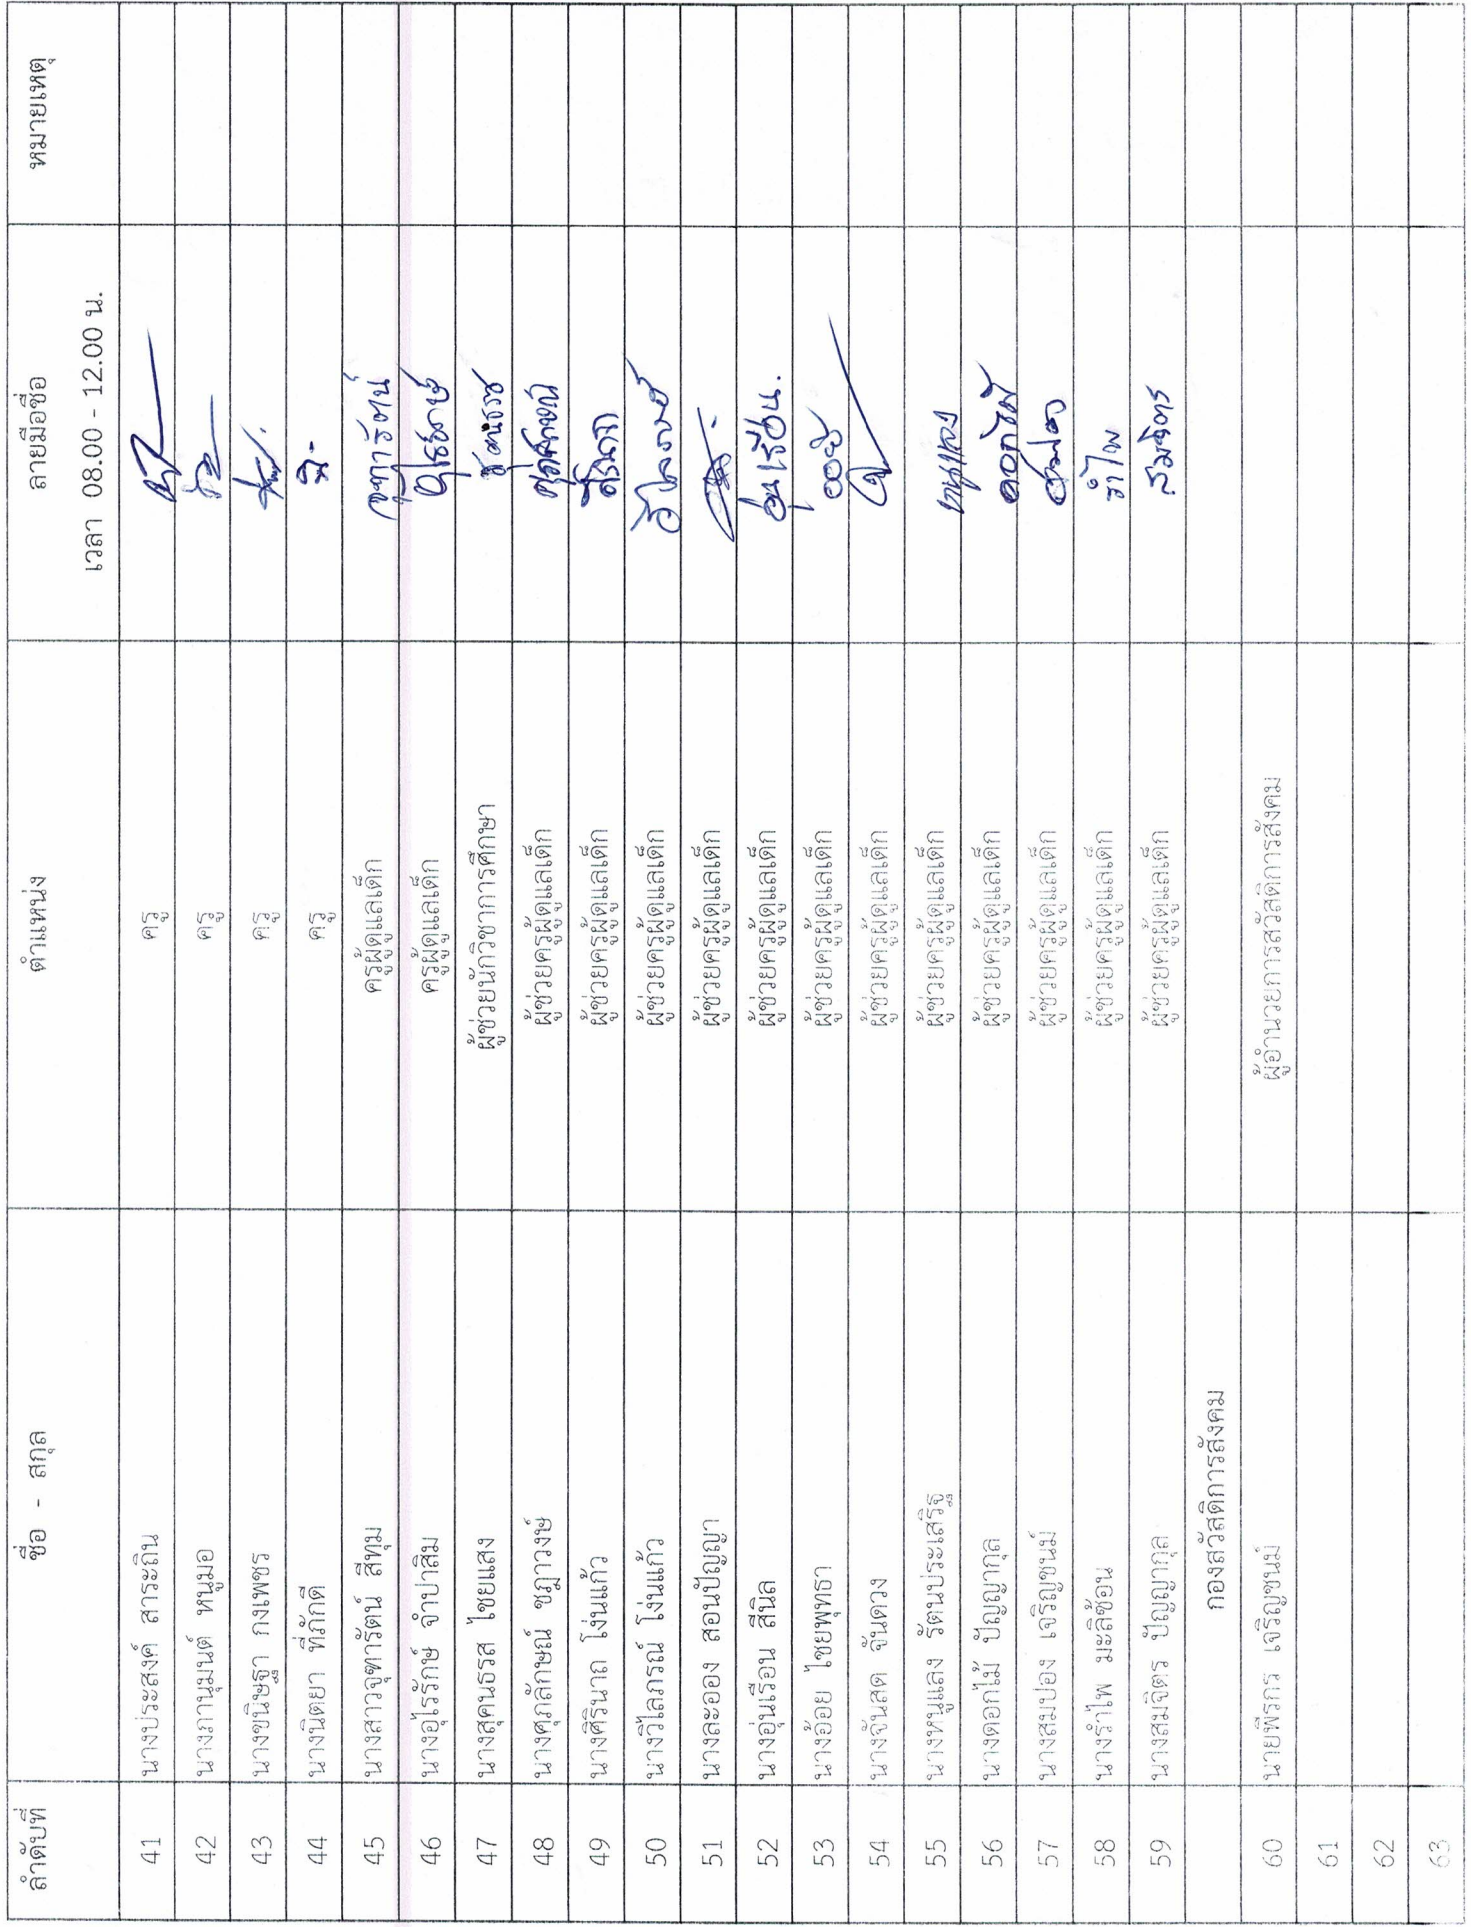 ลำดับที่ ชื่อ - สกุล ตำแหน่ง ลายมือชื่อ หมายเหตุ
เวลา 08.00 - 12.00 น.
41 นางประสงค์ สาระถิน ครู
42 นางภานุมนต์ หนูมอ ครู
43 นางขนิษฐา กงเพชร ครู
44 นางนิตยา ที่ภักดี ครู
45 นางสาวจุฑารัตน์ สีทุม ครูผู้ดูแลเด็ก จุฑารัตน์
46 นางอุไรรักษ์ จำปาสิม ครูผู้ดูแลเด็ก อุไรรักษ์
47 นางสุคนธรส ไชยแสง ผู้ช่วยนักวิชาการศึกษา
48 นางศุภลักษณ์ ชฎาวงษ์ ผู้ช่วยครูผู้ดูแลเด็ก ศุภลักษณ์
49 นางศิรินาถ โง่นแก้ว ผู้ช่วยครูผู้ดูแลเด็ก
50 นางวิไลภรณ์ โง่นแก้ว ผู้ช่วยครูผู้ดูแลเด็ก
51 นางละออง สอนปัญญา ผู้ช่วยครูผู้ดูแลเด็ก
52 นางอุ่นเรือน สีนิล ผู้ช่วยครูผู้ดูแลเด็ก อุ่นเรือน.
53 นางอ้อย ไชยพุทธา ผู้ช่วยครูผู้ดูแลเด็ก
54 นางจันสด จันดวง ผู้ช่วยครูผู้ดูแลเด็ก
55 นางหนูแลง รัตนประเสริฐ ผู้ช่วยครูผู้ดูแลเด็ก หนูแลง
56 นางดอกไม้ ปัญญากุล ผู้ช่วยครูผู้ดูแลเด็ก ดอกไม้
57 นางสมปอง เจริญชนม์ ผู้ช่วยครูผู้ดูแลเด็ก
58 นางรำไพ มะลิซ้อน ผู้ช่วยครูผู้ดูแลเด็ก รำไพ
59 นางสมจิตร ปัญญากุล ผู้ช่วยครูผู้ดูแลเด็ก สมจิตร
กองสวัสดิการสังคม
60 นายพีรกร เจริญชนม์ ผู้อำนวยการสวัสดิการสังคม
61
62
63